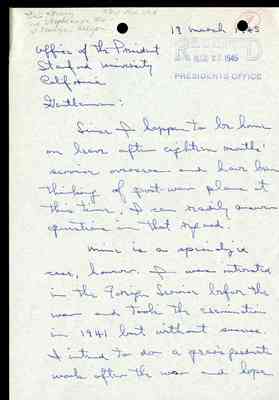 13 March 1945
Office of the President
Stanford University
California
RECEIVED
MAR 27 1945
PRESIDENTS OFFICE
Gentlemen:
Since I happen to be home
on leave after eighteen months'
service overseas and have been
thinking of post-war plans at
this time, I can readily answer
questions in that regard.
Mine is a specialized
case, however. I was interested
in the Foreign Service before the
war and took the examination
in 1941 but without success.
I intend to do a year's graduate
work after the war and hope